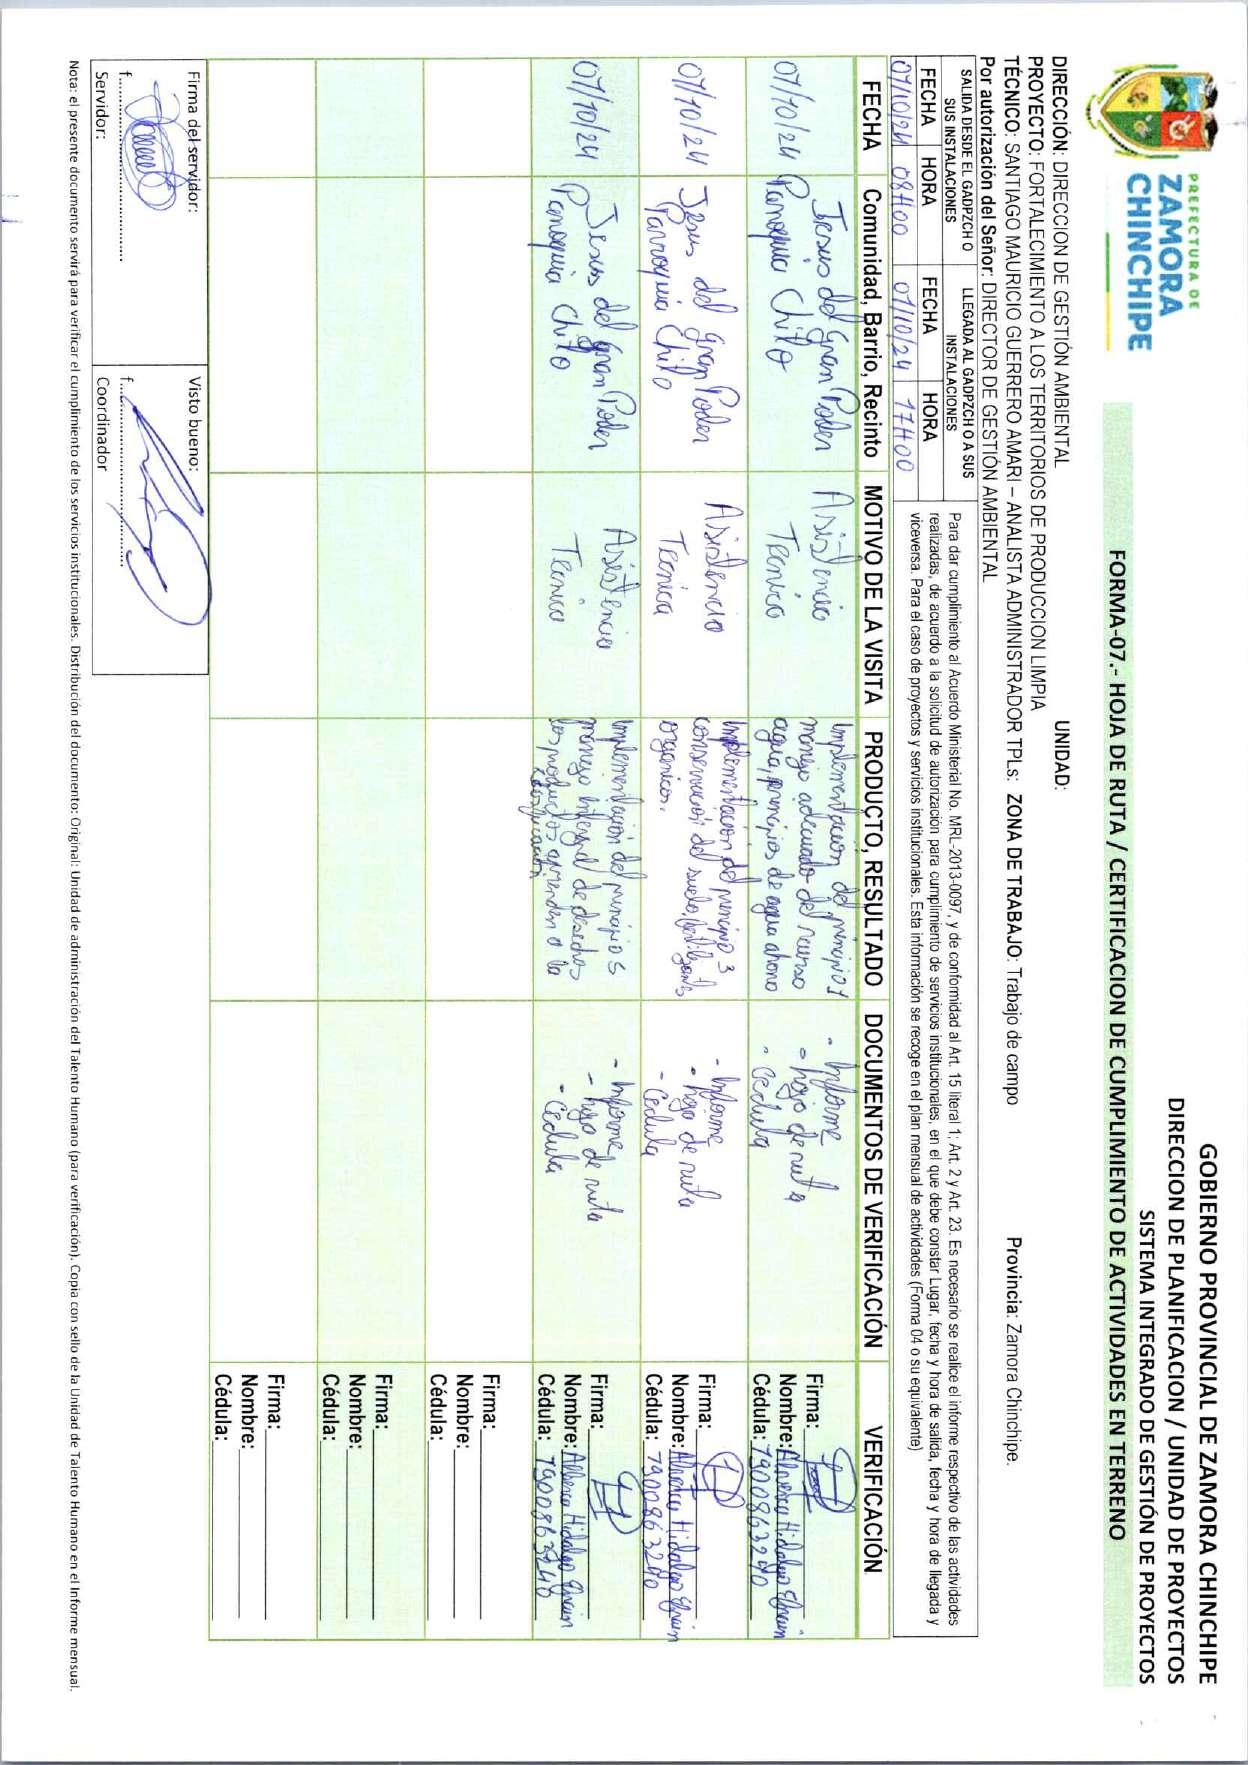 PREFECTURA DE
ZAMORA
CHINCHIPE
GOBIERNO PROVINCIAL DE ZAMORA CHINCHIPE
DIRECCION DE PLANIFICACION / UNIDAD DE PROYECTOS
SISTEMA INTEGRADO DE GESTIÓN DE PROYECTOS
FORMA-07.- HOJA DE RUTA / CERTIFICACION DE CUMPLIMIENTO DE ACTIVIDADES EN TERRENO
DIRECCIÓN: DIRECCION DE GESTIÓN AMBIENTAL UNIDAD:
PROYECTO: FORTALECIMIENTO A LOS TERRITORIOS DE PRODUCCION LIMPIA
TÉCNICO: SANTIAGO MAURICIO GUERRERO AMARI – ANALISTA ADMINISTRADOR TPLs: ZONA DE TRABAJO: Trabajo de campo Provincia: Zamora Chinchipe.
Por autorización del Señor: DIRECTOR DE GESTIÓN AMBIENTAL
SALIDA DESDE EL GADPZCH O SUS INSTALACIONES
LLEGADA AL GADPZCH O A SUS INSTALACIONES
FECHA HORA FECHA HORA
07/10/24 08H00 07/10/24 17H00
Para dar cumplimiento al Acuerdo Ministerial No. MRL-2013-0097, y de conformidad al Art. 15 literal 1; Art. 2 y Art. 23. Es necesario se realice el informe respectivo de las actividades
realizadas, de acuerdo a la solicitud de autorización para cumplimiento de servicios institucionales, en el que debe constar Lugar, fecha y hora de salida, fecha y hora de llegada y
viceversa. Para el caso de proyectos y servicios institucionales. Esta información se recoge en el plan mensual de actividades (Forma 04 o su equivalente)
FECHA Comunidad, Barrio, Recinto MOTIVO DE LA VISITA PRODUCTO, RESULTADO DOCUMENTOS DE VERIFICACIÓN VERIFICACIÓN
07/10/24
Jesus del Gran Poder
Parroquia Chito
Asistencia
Tecnica
Implementacion del principio 1
manejo adecuado del recurso
agua, principios de agua ahorro
- Informe
- hoja de ruta
- Cedula
Firma:
Nombre: Hidalgo Efrain
Cédula: 1900863240
07/10/24
Jesus del Gran Poder
Parroquia Chito
Asistencia
Tecnica
Implementacion del principio 3
conservacion del suelo,
organicos.
- Informe
- hoja de ruta
- Cedula
Firma:
Nombre: Hidalgo Efrain
Cédula: 1900863240
07/10/24
Jesus del Gran Poder
Parroquia Chito
Asistencia
Tecnica
Implementación del principio 5
manejo integral de desechos
los productos aprenden a la
- Informe
- hoja de ruta
- Cedula
Firma:
Nombre: Hidalgo Efrain
Cédula:
Firma:
Nombre:
Cédula:
Firma:
Nombre:
Cédula:
Firma:
Nombre:
Cédula:
Firma del servidor: Visto bueno:
f. f.
Servidor: Coordinador
Nota: el presente documento servirá para verificar el cumplimiento de los servicios institucionales. Distribución del documento: Original: Unidad de administración del Talento Humano (para verificación). Copia con sello de la Unidad de Talento Humano en el Informe mensual.